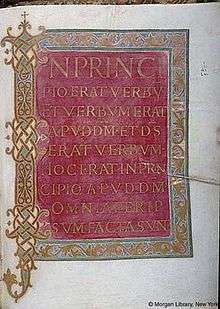 NPRINCI
PIO.ERAT VERBU
ET VERBUM ERAT
APUD DM.ET DS
ERAT VERBUM.
HOC ERAT IN PRN
CIPIO APUD DM
OMNIA PER IP
SUM FACTA SUN
© Morgan Library, New York